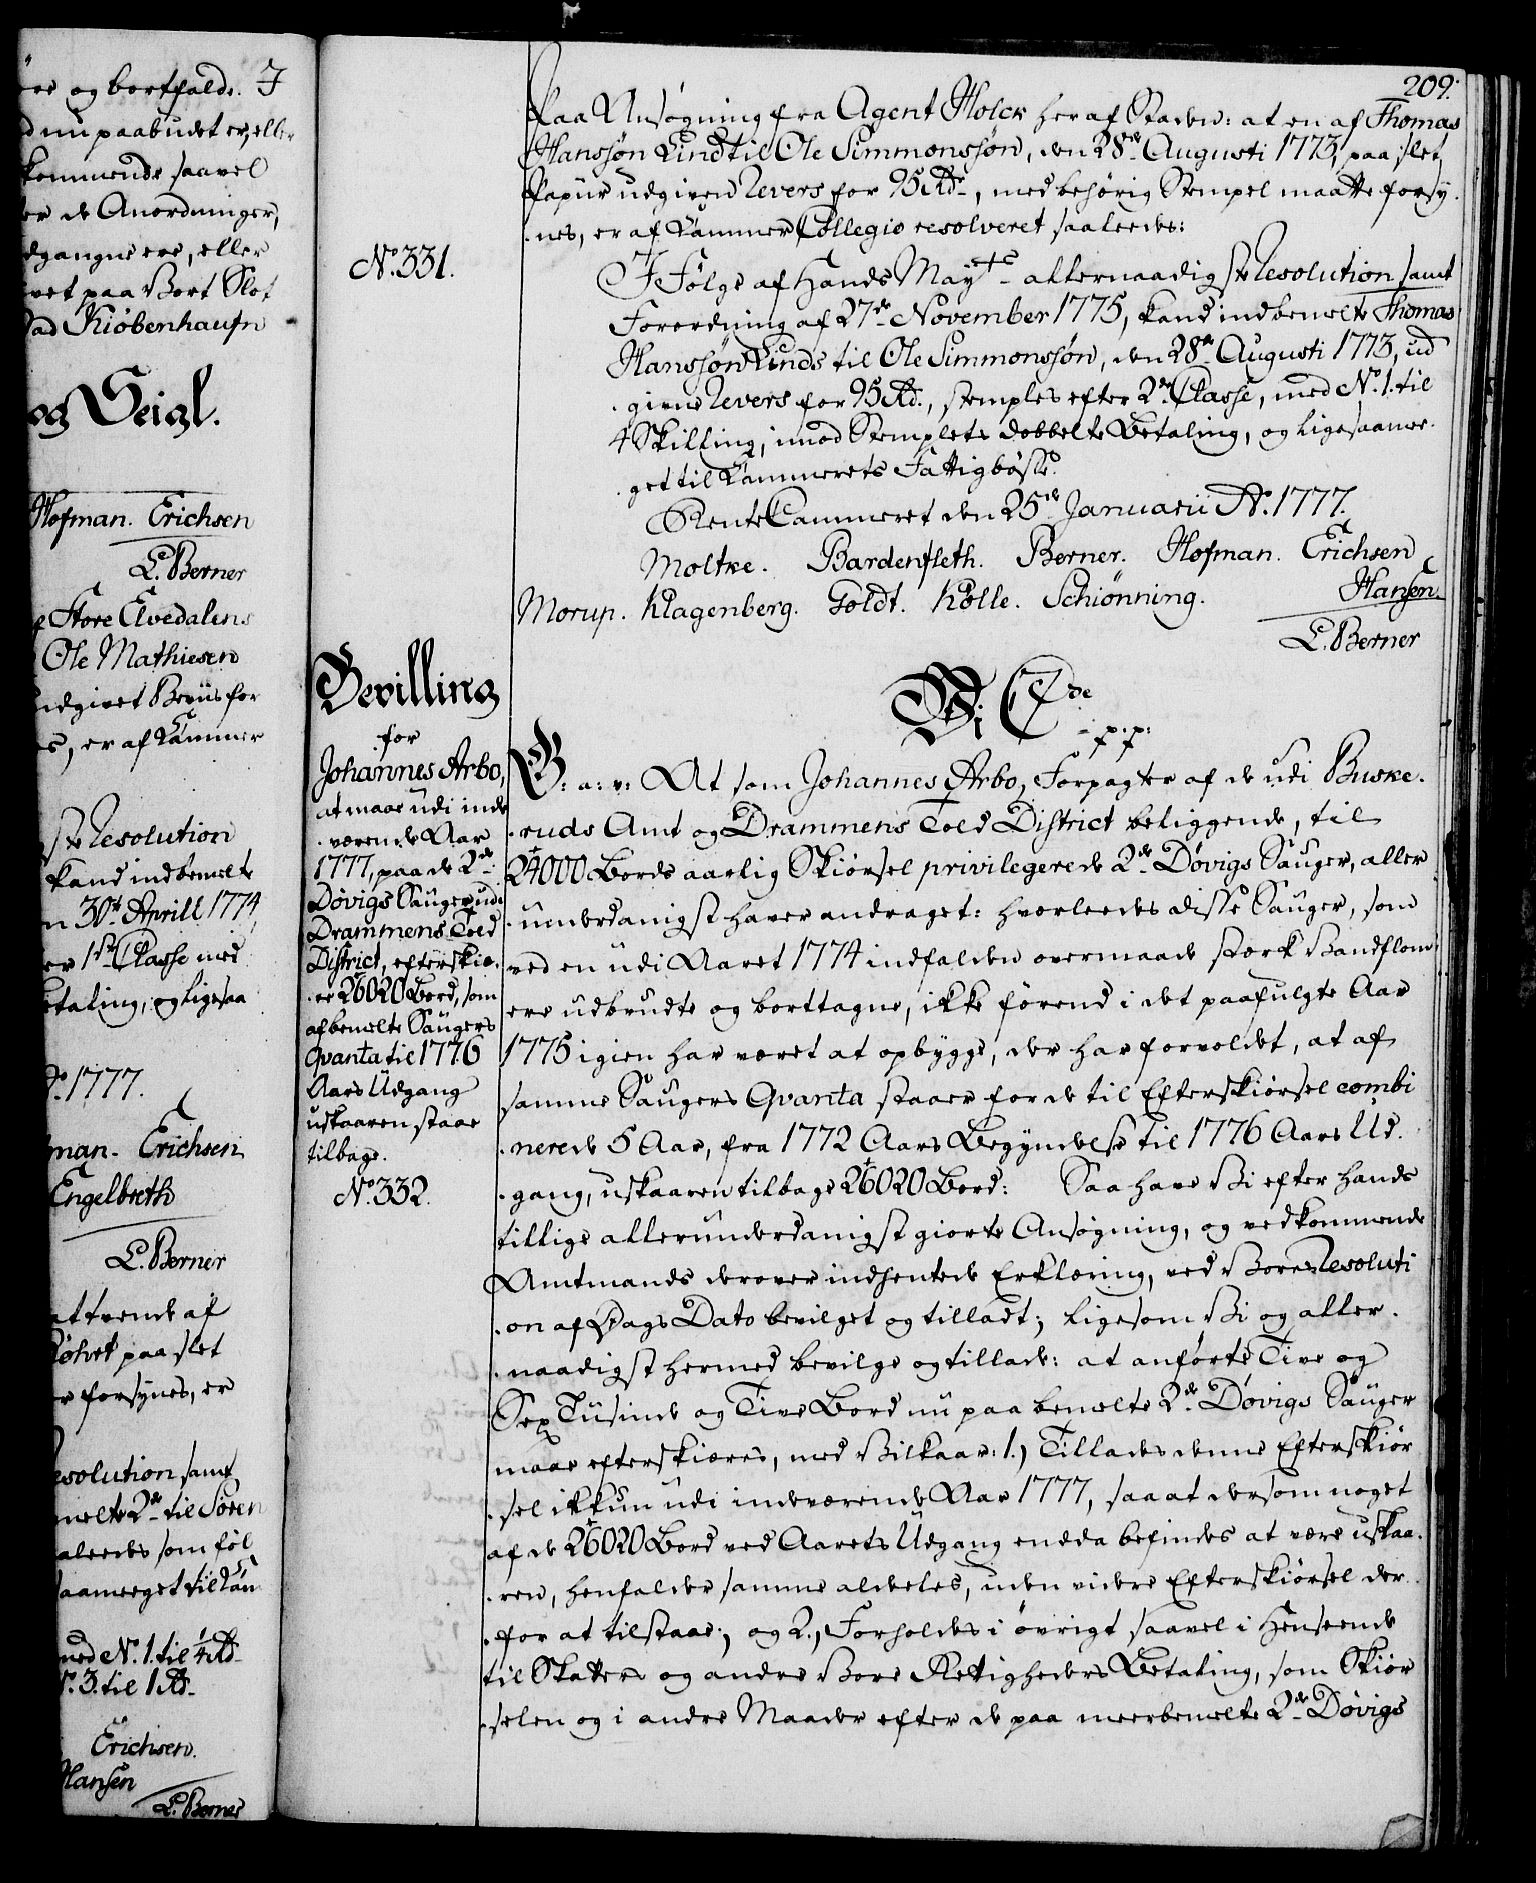 es og bortfalde. I
d nu paabudet er, eller
kommende saavel
er de Anordninger,
dgangne ere, eller
vet paa Vort Slot
Stad Kiøbenhaufn
og Seigl.
Hofman. Erichsen
L. Berner
Store Elvedalens
Ole Mathiesen
udgivet Beviis for
s, er af Kammer
ste Resolution
kand indbemelte
n 30te Aprill 1774
er 1ste Classe med
etaling, og ligesaa
Ao. 1777.
man. Erichsen
Engelbreth
L. Berner
attrende af
paa slet
er forsynes, er
esolution samt
melte 2de til Søren
aleedes som føl
saameeget til Kam
med No. 1. til 4 Rd
No. 3. til 1 Rd.
Erichsen.
Hansen
L. Berner
209.
Paa Ansøgning fra Agent Holck her af Staden: at en af Thomas
Hanssøn Lind til Ole Simmonssøn, den 28de Augusti 1773, paa slet
Papiir udgiven Revers for 95 Rdr, med behørig Stempel maatte forsy-
nes, er af Kammer Collegio resolveret saaleedes:
No. 331.
I Følge af Hands Mayts allernaadigste Resolution samt
Forordning af 27de November 1775, kand indbemelte Thomas
Hanssøn Linds til Ole Simmonssøn, den 28de Augusti 1773, ud
givne Revers for 95 Rd., stemples efter 2den Classe, med No. 1. til
4 Skilling, imod Stemplets dobbelte Betaling, og ligesaamee-
get til Kammerets Fattigbøsse.
RenteCammeret den 25de Januarii Ao. 1777.
Moltke. Bardenfleth. Berner. Hofman. Erichsen
Morup. Klagenberg. Goldt. Kølle. Schiønning. Hansen.
L. Berner
Bevilling
for
Johannes Arbo,
at maae udi inde
værende Aar
1777, paa de 2de
Døvigs Sauger udi
Drammens Told
District, efterskiæ-
re 26020 Bord, som
af bemelte Saugers
Qvanta til 1776
Aars Udgang
uskaaren staae
tilbage.
No. 332.
Wi C 7de
p. p:
G: a: v: At som Johannes Arbo, Forpagter af de udi Buske-
ruds Amt og Drammens Told District beliggende, til
24000 Bords aarlig Skiørsel privilegerede 2de Døvigs Sauger, aller
underdanigst haver andraget: hvorleedes disse Sauger, som
ved en udi Aaret 1774 indfalden overmaade stærk Vandflom
ere udbrudte og borttagne, ikke førend i det paafulgte Aar
1775 igien har været at opbygge, der har forvoldet, at af
samme Saugers Qvanta staaer for de til Efterskiørsel combi
nerede 5 Aar, fra 1772 Aars Begyndelse til 1776 Aars Ud-
gang, uskaaren tilbage 26020 Bord: Saa have Vi efter hands
tillige allerunderdanigst giorte Ansøgning, og vedkommende
Amtmands derover indhentede Erklæring, ved Vores Resoluti
on af Dags Dato bevilget og tilladt; ligesom Vi og aller-
naadigst hermed bevilge og tillade: at anførte Tive og
Sex Tusinde og Tive Bord nu paa bemelte 2de Døvigs Sauger
maae efterskiæres, med Vilkaar: 1.) Tillades denne Efterskiør
sel ikkun udi indeværende Aar 1777, saa at dersom noget
af de 26020 Bord ved Aarets Udgang endda befindes at være uskaa-
ren, henfalder samme aldeeles, uden videre Efterskiørsel der-
for at tilstaae; og 2., Forholdes i øvrigt saavel i Henseende
til Skatters og andre Vore Rettigheders Betaling, som Skiør
selen og i andre Maader efter de paa meerbemelte 2de Døvigs